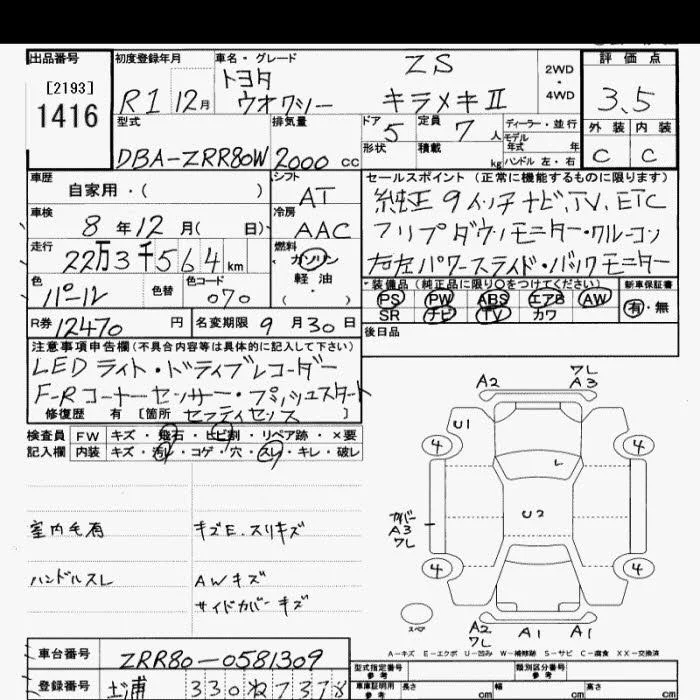 出品番号
[2193]
1416
初度登録年月
R1 12月
車名・グレード
トヨタ
ヴォクシー
ZS
キラメキⅡ
2WD
・
4WD
評価点
3.5
外装 内装
C C
型式
DBA-ZRR80W
排気量
2000 cc
ドア 5
定員 7 人
ディーラー・並行
モデル
年式 年
形状
積載 kg
ハンドル 左・右
車歴
自家用・( )
シフト
AT
車検
8年12月( 日)
冷房
AAC
走行
22万3千564km
燃料
ガソリン
軽油
( ・ )
色
パール
色替
色コード
070
R券 12470 円
名変期限 9月30日
セールスポイント (正常に機能するものに限ります)
純正9インチナビ、TV、ETC
フリップダウンモニター・クルコン
右左パワースライド・バックモニター
装備品(純正品に限り○をつけてください)
PS PW ABS エアB AW
SR ナビ TV カワ
新車保証書
有・無
後日品
注意事項申告欄(不具合内容等は具体的に記入して下さい)
LEDライト・ドライブレコーダー
F-Rコーナーセンサー・プッシュスタート
修復歴 有 [箇所 セーフティセンス ]
検査員 FW キズ・飛石・ヒビ割・リペア跡・×要
記入欄 内装 キズ・汚レ・コゲ・穴・スレ・キレ・破レ
室内毛有
キズE.スリキズ
ハンドルスレ
AWキズ
サイドカバーキズ
A2
ワレ
A3
U1
4
4
L
U2
カバー
A3
ワレ
4
4
スペア
A2
ワレ
A1
A1
A-キズ E-エクボ U-凹み W-補修跡 S-サビ C-腐食 XX-交換済
車台番号 ZRR80-0581309
登録番号 土浦 330 ね 7378
型式指定番号
参考
類別区分番号
参考
車庫証明用
参考
長さ cm
幅 cm
高さ cm